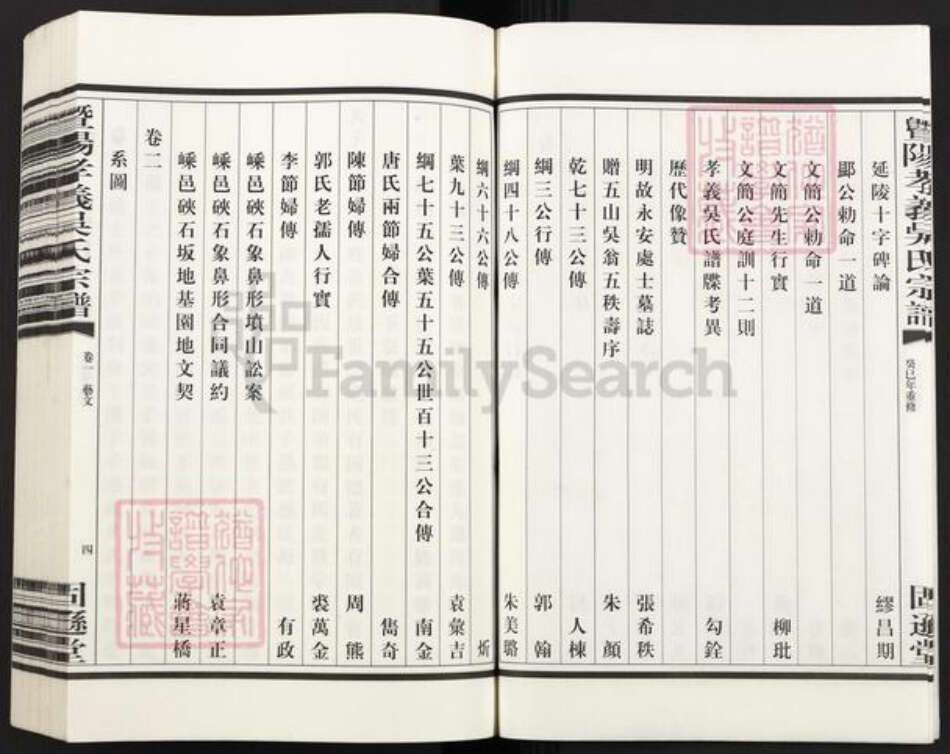 暨陽孝義吳氏宗譜
癸巳年重修
延陵十字碑論 繆昌期
鄖公勅命一道
文簡公勅命一道
文簡先生行實 柳玭
文簡公庭訓十二則
孝義吳氏譜牒考異 勾銓
歷代像贊
明故永安處士墓誌 張希秩
贈五山吳翁五秩壽序 朱顏
乾七十三公傳 人棟
綱三公行傳 郭翰
綱四十八公傳 朱美璐
綱六十六公傳 炘
葉九十三公傳 袁彙吉
綱七十五公葉五十五公世百十三公合傳 南金
唐氏兩節婦合傳 雋奇
陳節婦傳 周熊
郭氏老孺人行實 裘萬金
李節婦傳 有政
嵊邑硤石象鼻形墳山訟案
嵊邑硤石象鼻形合同議約 袁章正
嵊邑硤石坂地基園地文契 蔣星橋
卷二
系圖
暨陽孝義吳氏宗譜
卷一 藝文
四
FamilySearch